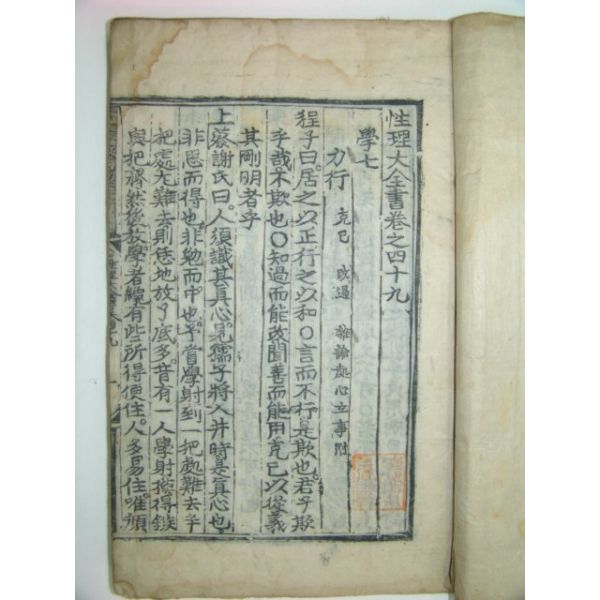 性理大全書卷之四十九
學七
力行 克己 改過 雜論處心立事附
程子曰。居之以正行之以和○言而不行是欺也。君子欺
乎哉不欺也○知過而能改聞善而能用克已以從義
其剛明者乎
上蔡謝氏曰。人須識其眞心。見孺子將入井時是眞心也
非思而得也。非勉而中。也。予嘗學射到一把處難去半
把處尤難去則恁地放了底多。昔有一人學射摸得鏃
與把齊然後放學者纔有些所得便住。人多易住唯顔